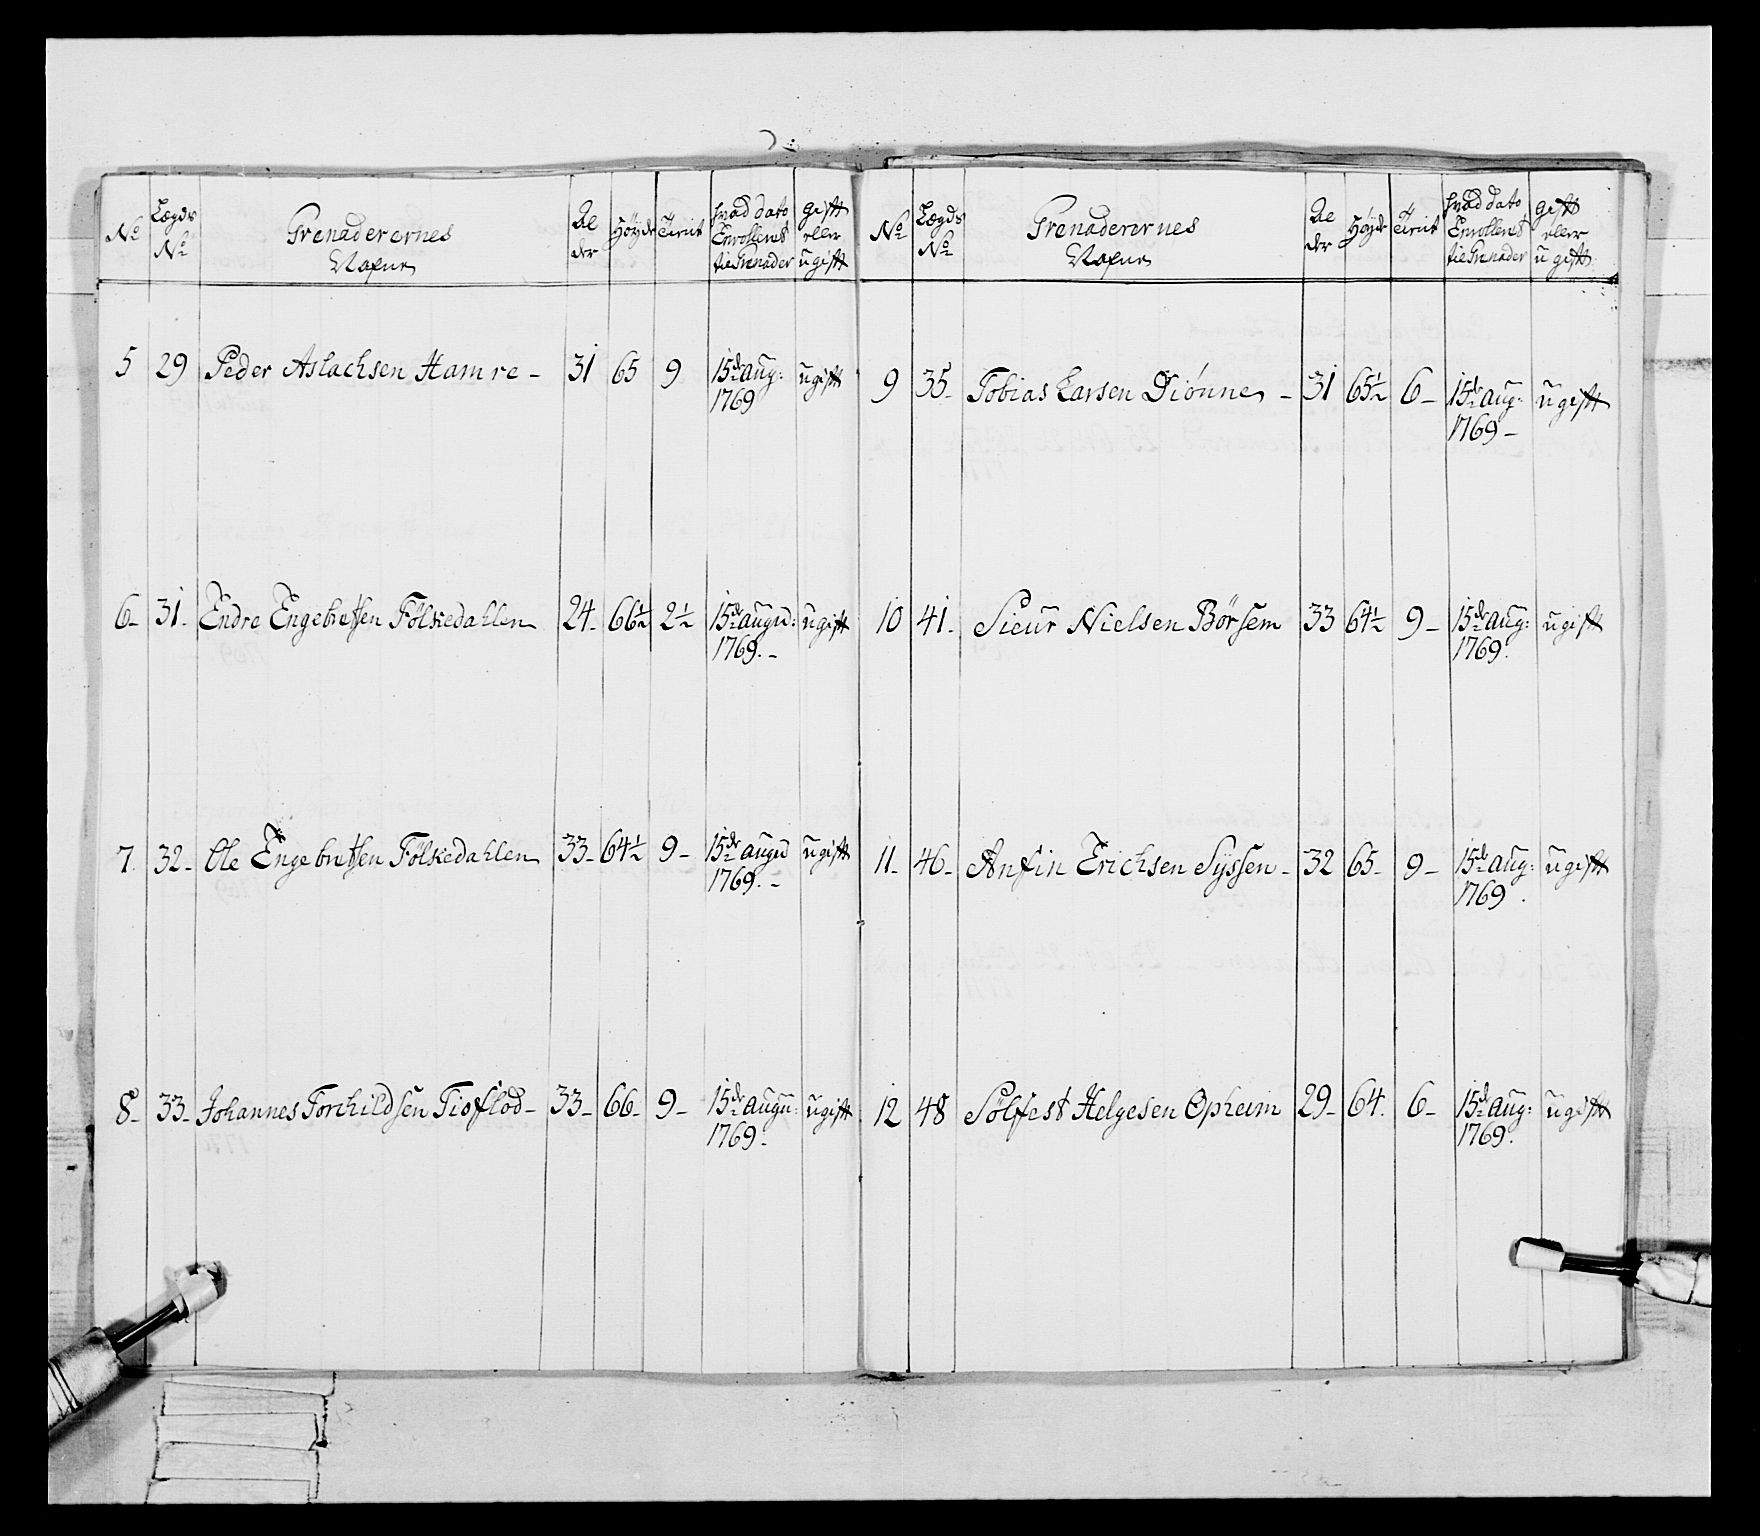 No | Lægds No | Grenaderernes Nafne | Alder | Höyde | Tienst | hvad dato Enrolleret til Grenader | gift eller ugift
5 | 29 | Peder Aslachsen Hamre - | 31 | 65 | 9 | 15de aug: 1769 | ugift
6- | 31- | Endre Engebretsen Fölkedahlen | 24- | 66½ | 2½ | 15de augu: 1769.- | ugift
7. | 32- | Ole Engebretsen Fölkedahlen | 33- | 64½ | 9- | 15de augu 1769.- | ugift
8- | 33- | Johannes Torchildsen Tioflod- | 33- | 66- | 9- | 15de augu: 1769.- | ugift
No | Lægds No | Grenaderernes Nafne | Alder | Höyde | Tienst | hvad dato Enrolleret til Grenader | gift eller ugift
9 | 35- | Tobias Larsen Diönne - | 31 | 65½ | 6- | 15de aug: 1769- | ugift
10 | 41- | Sieur Nielsen Börsem | 33 | 64½ | 9- | 15de aug: 1769. | ugift
11- | 46- | Anfin Erichsen Syssen- | 32 | 65- | 9- | 15de aug: 1769. | ugift
12 | 48 | Sölfest Helgesen Opheim | 29- | 64. | 6- | 15de aug: 1769. | ugift